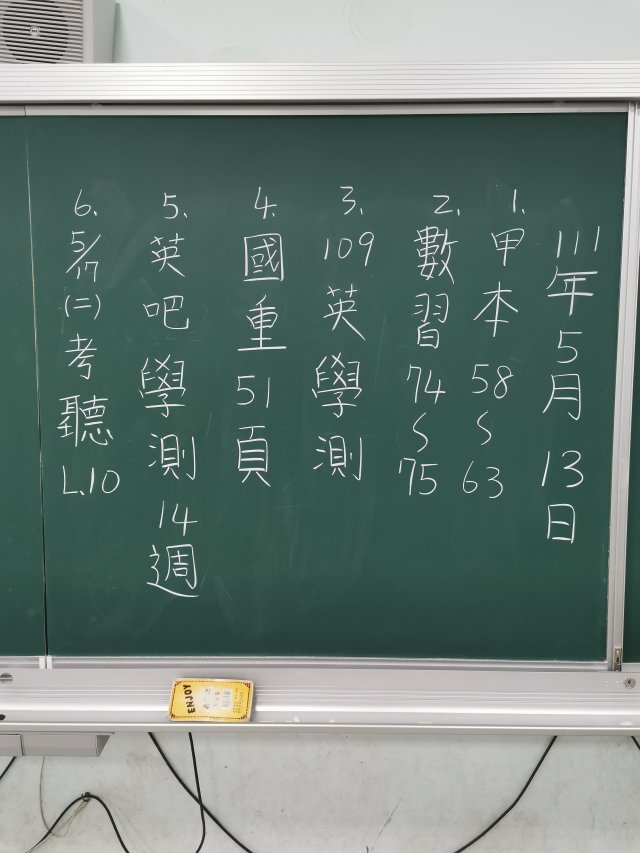 111年5月13日
1.甲本58~63
2.數習74~75
3.109英學測
4.國重51頁
5.英吧學測14週
6.5/17(二)考聽L.10
ENJOY